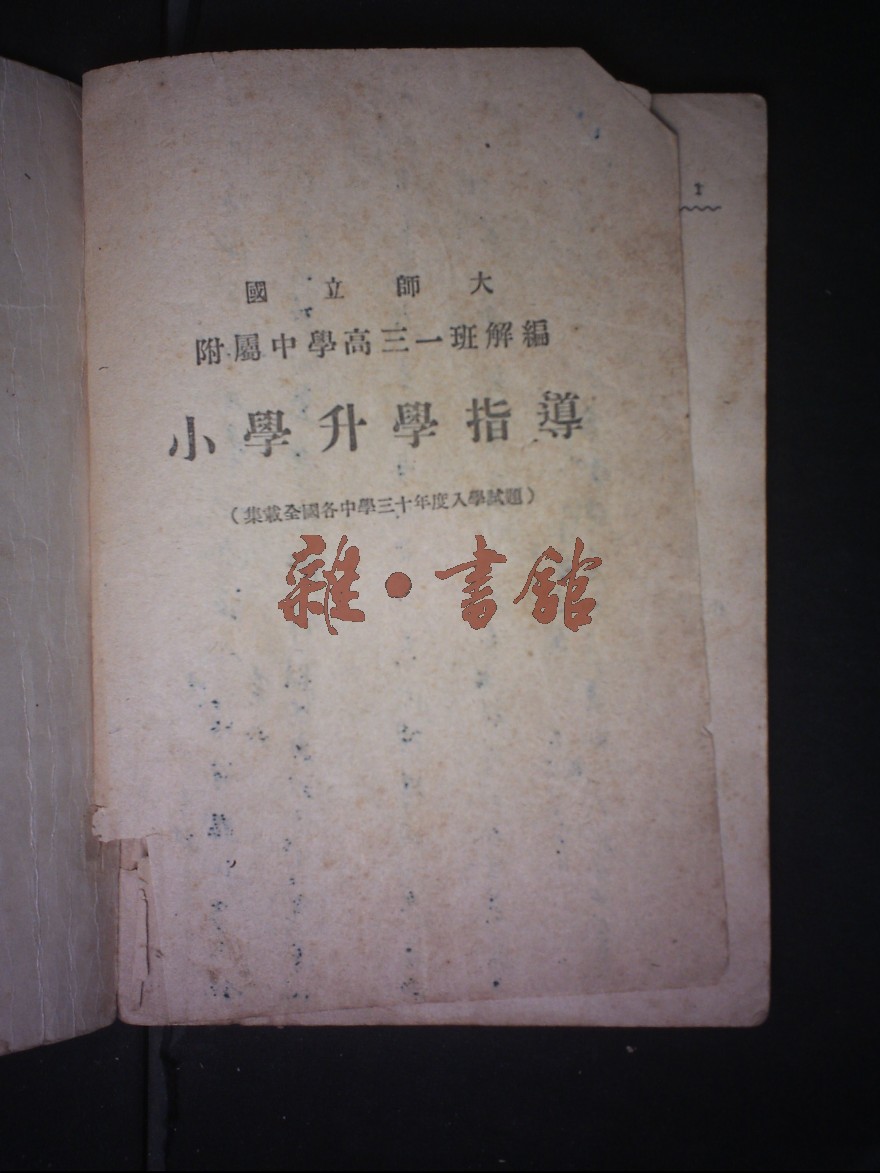 國立師大
附屬中學高三一班解編
小學升學指導
（集載全國各中學三十年度入學試題）
雜·書館